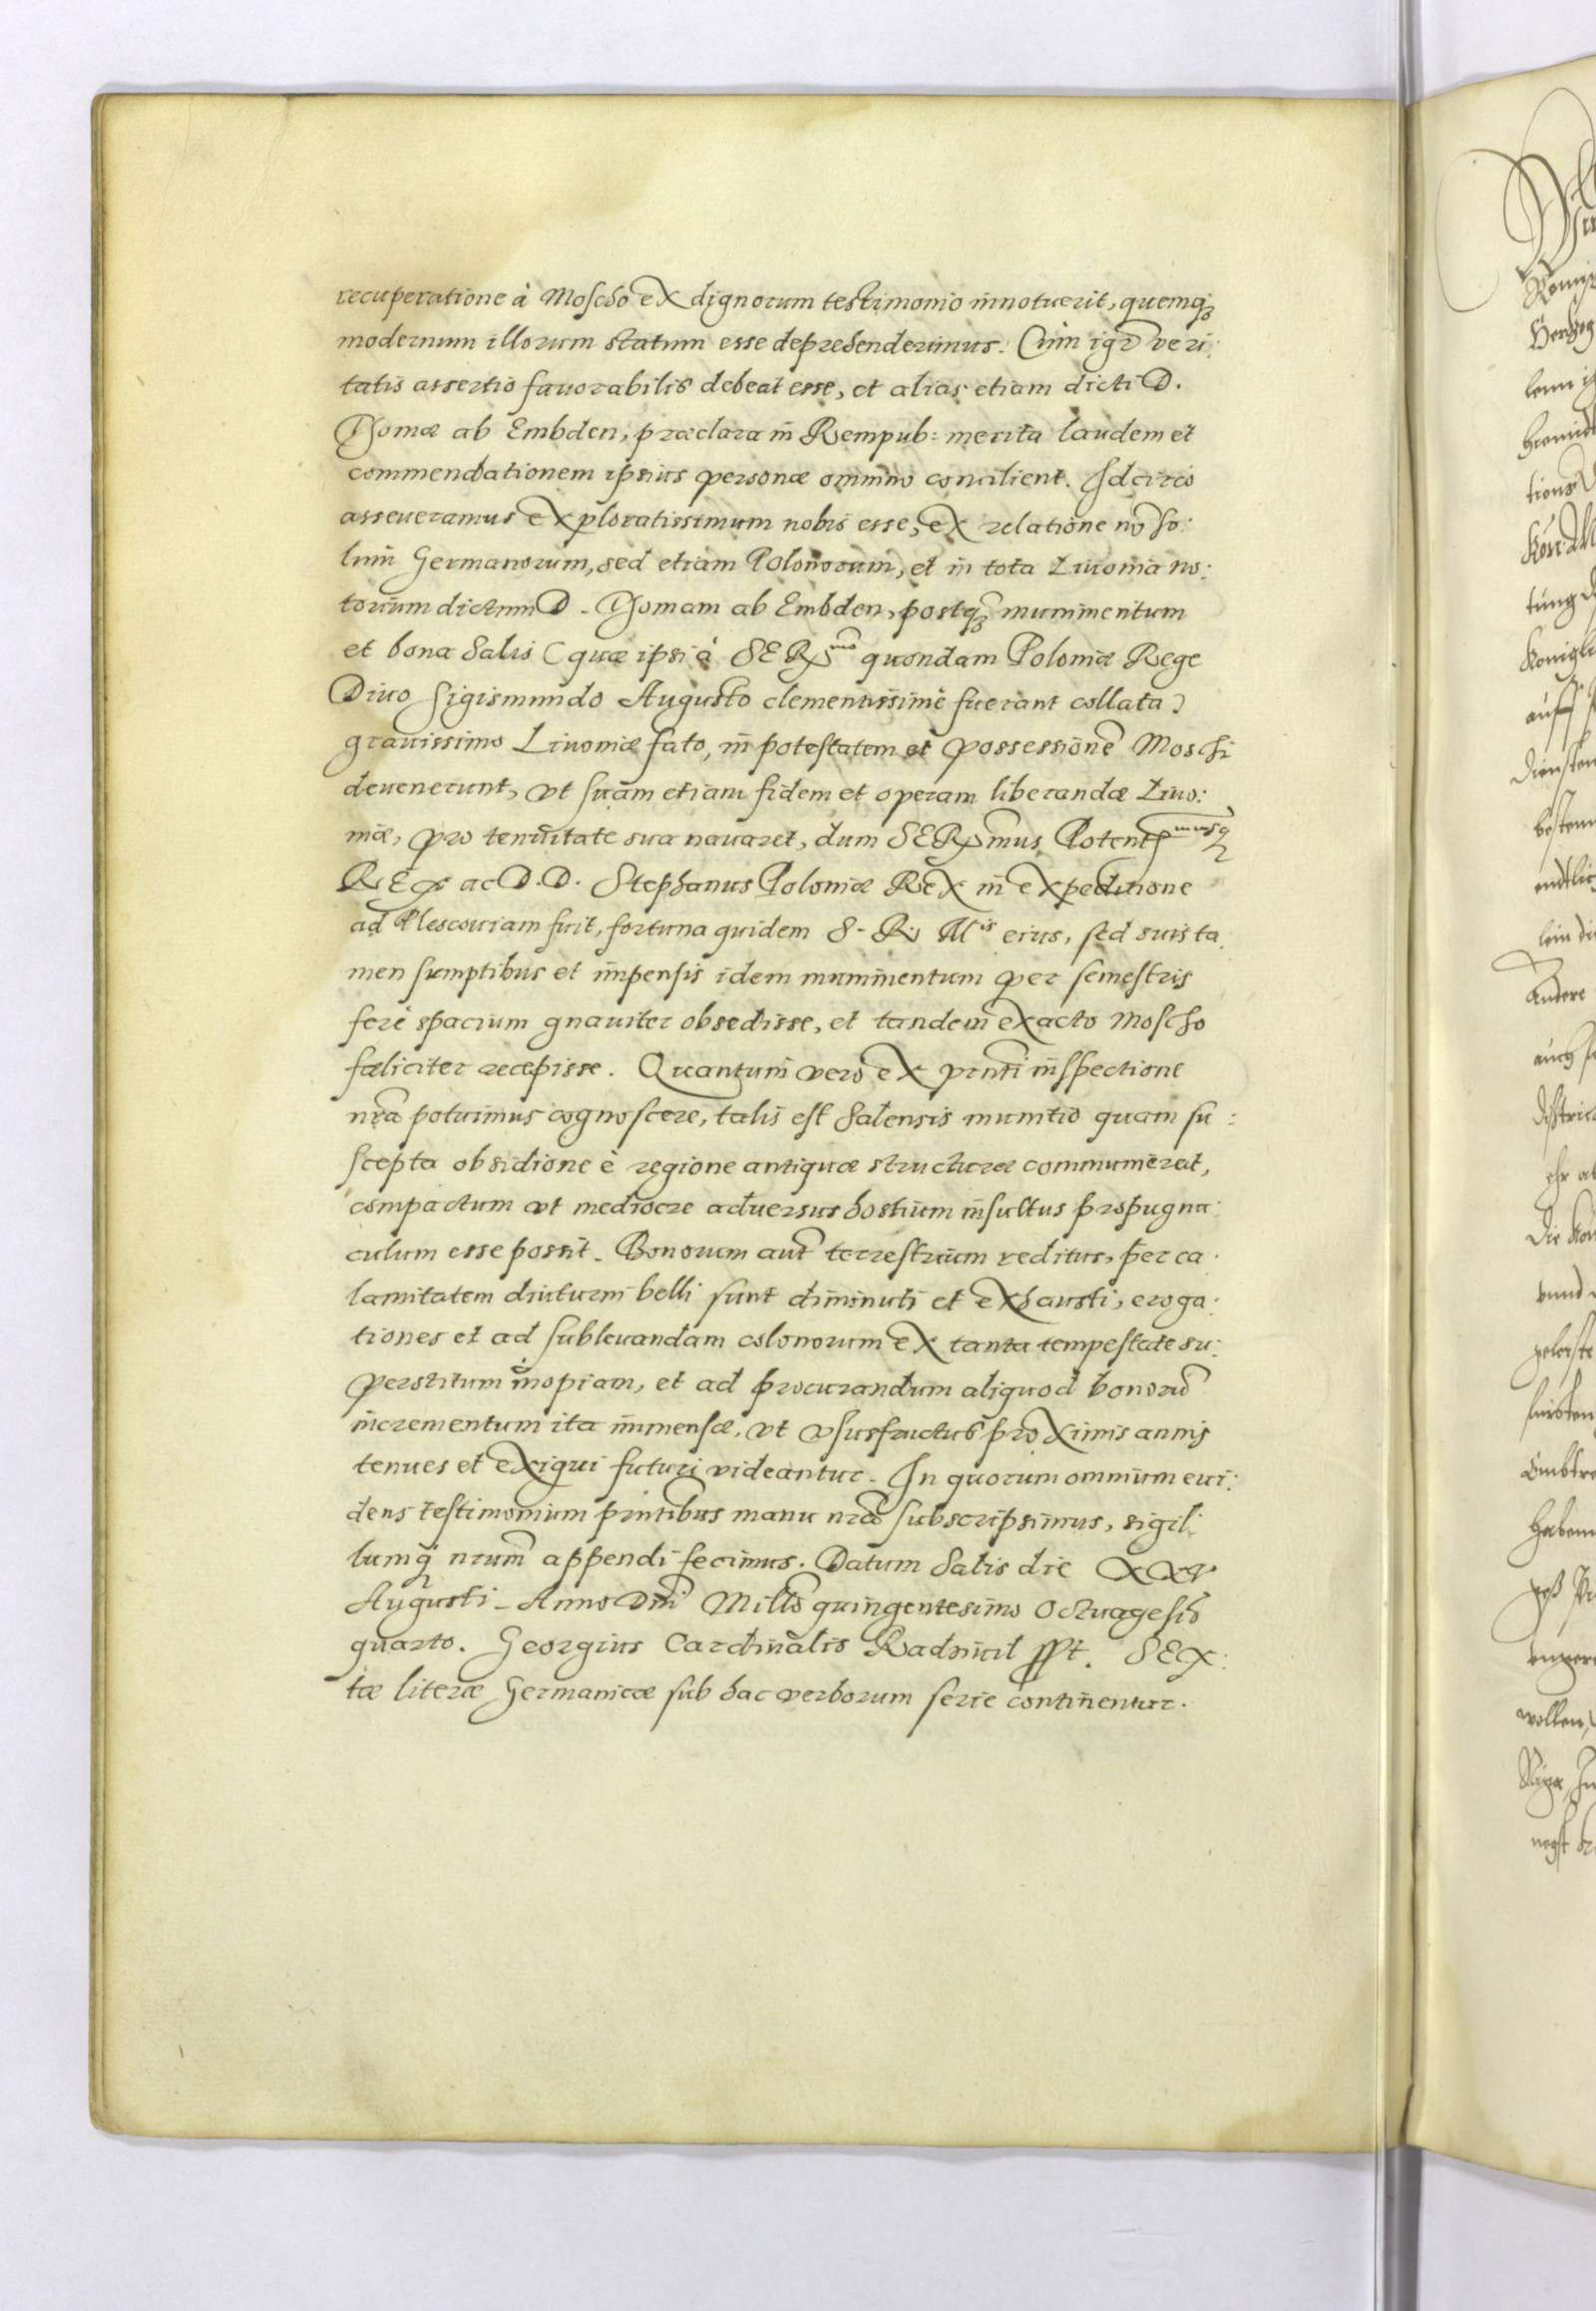 recuperatione à Moscho ex dignorum testimonio innotuerit, quemqꝫ
modernum illorum statum esse deprehenderimus. Cùm igr̃ veri:
tatis assertio fauorabilis debeat esse, et alias etiam dicti D.
Thomæ ab Embden, præclara in Rempub: merita laudem et
commendationem ipsius personæ omnino concilient. Idcirco
asseueramus exploratissimum nobis esse, ex relatione nõ so:
lum Germanorum, sed etiam Polonorum, et in tota Liuonia no:
torium dictum D. Thomam ab Embden, postq̃ꝫ munimentum
et bona Salis (quæ ipsi à SERmo quondam Poloniæ Rege
Diuo Sigismundo Augusto clementissimè fuerant collata)
grauissimo Liuoniæ fato, in potestatem et possessionẽ Moschi
deuenerunt, vt suam etiam fidem et operam liberandæ Liuo:
niæ, pro tenuitate sua nauaret, dum SERmus Potentmusq
REX ac D.D. Stephanus Poloniæ Rex in expeditione
ad Plescouiam fuit, fortuna quidem S. R. Mis eius, sed suis ta
men sumptibus et impensis idem munimentum per semestris
ferè spacium gnauiter obsedisse, et tandem exacto Moscho
fæliciter recepisse. Quantum vero ex prñti inspectione
nr̃a potuimus cognoscere, talis est Salensis munitio quam su:
scepta obsidione è regione antiquæ structuræ communierat,
compactum vt mediocre aduersus hostium insultus propugna:
culum esse possit. Bonorum aut̃ terrestrium reditus, per ca:
lamitatem diuturni belli sunt diminuti et exhausti, eroga:
tiones et ad subleuandam colonorum ex tanta tempestate su:
perstitum inopiam, et ad procurandum aliquod bonorũ
incrementum ita immensæ, vt vsusfructus proximis annis
tenues et exigui futuri videantur. In quorum omnium eui:
dens testimonium prñtibus manu nrã subscripsimus, sigil:
lumq̃ nrum̃ appendi fecimus. Datum Salis die XXV
Augusti. Anno Dñi Millõ quingentesimo Octuagesiõ
quarto. Georgius Cardinalis Radziuil sspt. SEX:
tæ literæ Germanicæ sub hac verborum serie continentur.